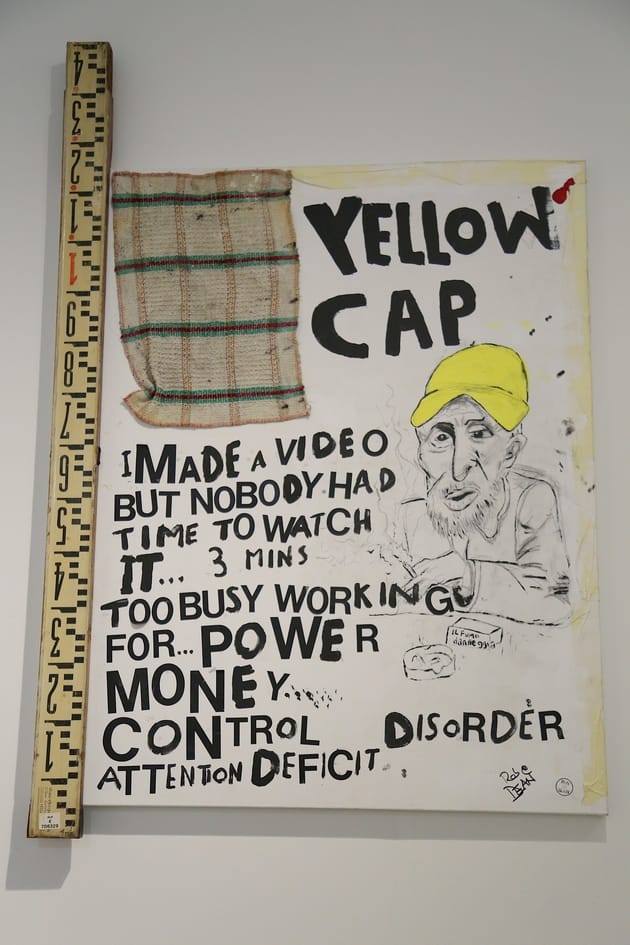 YELLOW
CAP
I MADE A VIDEO
BUT NOBODY HAD
TIME TO WATCH
IT... 3 MINS
TOO BUSY WORKING
FOR... POWER
MONEY.....
CONTROL DISORDER
ATTENTION DEFICIT
IL FUMO
danneggia
4
3
2
1
1
9
8
7
6
5
4
3
2
1